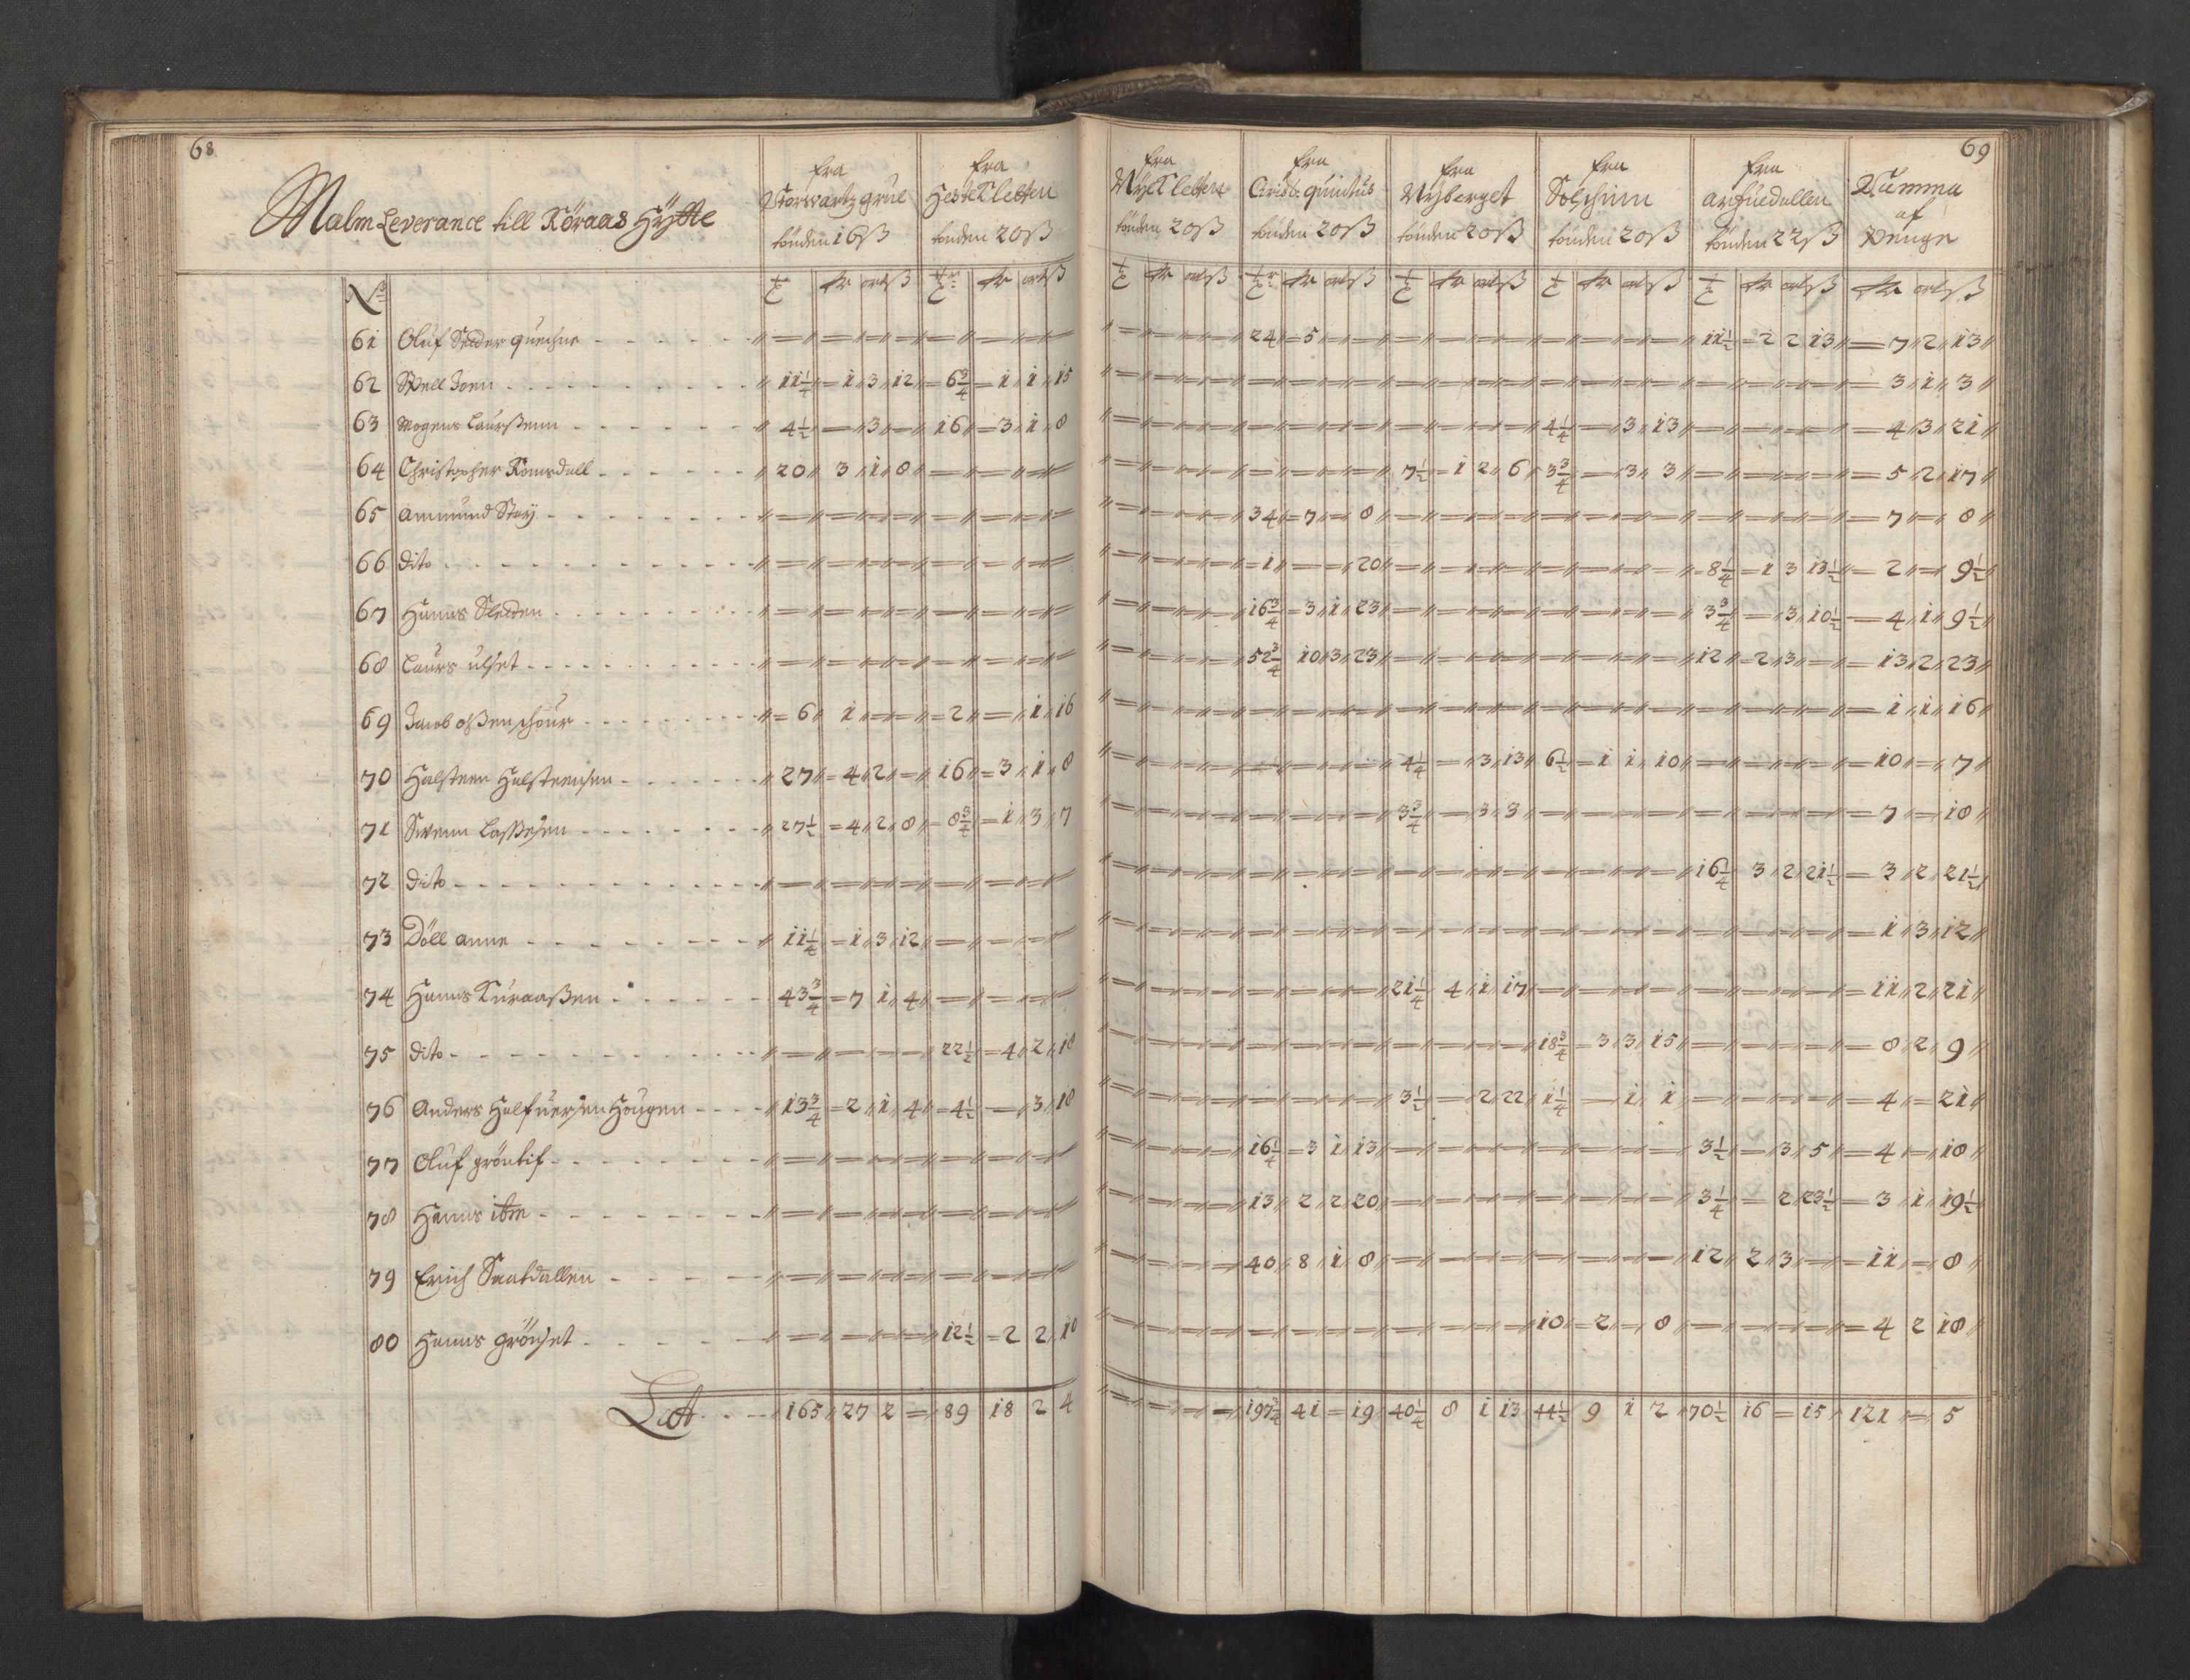 68
Malm Leverance till Röraas Hÿtte
fra Storwartz grue tönden 16 ß
fra HesteKletten tönden 20 ß
fra NÿeKletten tönden 20 ß
fra Crists: quintus tönden 20 ß
fra Nÿberget tönden 20 ß
fra Solschinn tönden 20 ß
fra arfuedallen tönden 22 ß
Summa af Penge
69
No
61 Oluf querhne 24 5 11½ 2 2 13 7 2 13
62 Pell Joen 11¼ 1 3 12 6¾ 1 1 15 3 1 3
63 Mogens Laurßenn 4½ 3 16 3 1 8 4¼ 3 13 4 3 21
64 Christopher Romsdall 20 3 1 8 7½ 1 2 6 3¾ 3 3 5 2 17
65 Ammund Støÿ 34 7 8 7 8
66 dito 1 20 8¼ 1 3 13½ 2 9½
67 Hanns Sledden 16¾ 3 1 23 3¾ 3 10½ 4 1 9½
68 Laurs ulset 52¾ 10 3 23 12 2 3 13 2 23
69 Jacob 6 1 2 1 16 1 1 16
70 Halsteen Halsteensen 27 4 2 16 3 1 8 4¼ 3 13 6½ 1 1 10 10 7
71 Swenn Laßesen 27½ 4 2 8 8¾ 1 3 7 3¾ 3 3 7 18
72 dito 16¼ 3 2 21½ 3 2 21½
73 Döll anne 11¼ 1 3 12 1 3 12
74 Hanns Kuraaßen 43¾ 7 1 4 21¼ 4 1 17 11 2 21
75 dito 22½ 4 2 18 18¾ 3 3 15 8 2 9
76 Anders Halfuersen Hougen 13¾ 2 1 4 4½ 3 18 3½ 2 22 1¼ 1 1 4 21
77 Oluf 16¼ 3 1 13 3½ 3 5 4 18
78 Hanns 13 2 2 20 3¼ 2 23½ 3 1 19½
79 Erich Saatdallen 40 8 1 8 12 2 3 11 8
80 Hanns grönset 12½ 2 2 10 10 2 8 4 2 18
Lat 165 27 2 89 18 2 4 197¾ 41 19 40¼ 8 1 13 44½ 9 1 2 70½ 16 15 121 5